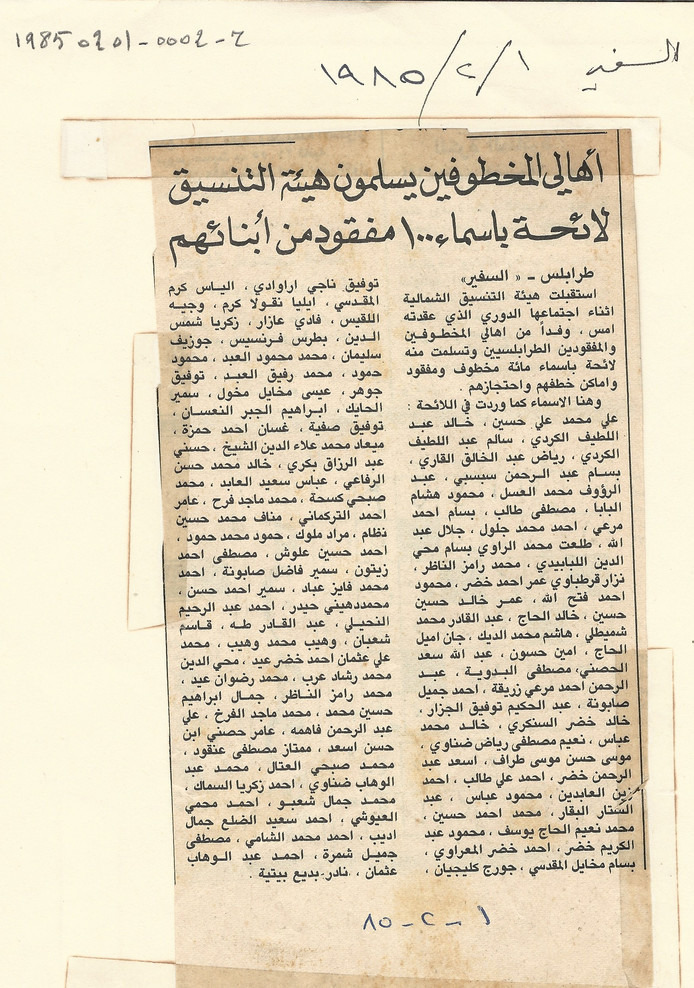 1985 0201-0002-7
السفير ١/٢/١٩٨٥
أهالي المخطوفين يسلمون هيئة التنسيق
لائحة باسماء ١٠٠ مفقود من أبنائهم
طرابلس - « السفير»
استقبلت هيئة التنسيق الشمالية
اثناء اجتماعها الدوري الذي عقدته
امس ، وفداً من اهالي المخطوفين
والمفقودين الطرابلسيين وتسلمت منه
لائحة باسماء مائة مخطوف ومفقود
واماكن خطفهم واحتجازهم .
وهنا الاسماء كما وردت في اللائحة :
علي محمد علي حسين ، خالد عبد
اللطيف الكردي ، سالم عبد اللطيف
الكردي ، رياض عبد الخالق القاري ،
بسام عبد الرحمن سبسبي ، عبد
الرؤوف محمد العسل ، محمود هشام
البابا ، مصطفى طالب ، بسام احمد
مرعي ، احمد محمد جلول ، جلال عبد
الله ، طلعت محمد الراوي بسام محي
الدين اللبابيدي ، محمد رامز الناظر ،
نزار قرطباوي عمر احمد خضر ، محمود
احمد فتح الله ، عمر خالد حسين
حسين ، خالد الحاج ، عبد القادر محمد
شميطلي ، هاشم محمد الديك ، جان اميل
الحاج ، امين حسون ، عبد الله سعد
الحصني، مصطفى البدوية ، عبد
الرحمن احمد مرعي زريقة ، احمد جميل
صابونة ، عبد الحكيم توفيق الجزار ،
خالد خضر السنكري ، خالد محمد
عباس ، نعيم مصطفى رياض ضناوي ،
موسى حسن موسى طراف ، اسعد عبد
الرحمن خضر ، احمد علي طالب ، احمد
زين العابدين ، محمود عباس ، عبد
الستار البقار ، محمد احمد حسين ،
محمد نعيم الحاج يوسف ، محمود عبد
الكريم خضر ، احمد خضر المعراوي ،
بسام مخايل المقدسي ، جورج كليجيان ،
توفيق ناجي اراوادي ، الياس كرم
المقدسي ، ايليا نقولا كرم ، وجيه
اللقيس ، فادي عازار ، زكريا شمس
الدين ، بطرس فرنسيس ، جوزيف
سليمان ، محمد محمود العبد ، محمود
حمود ، محمد رفيق العبد ، توفيق
جوهر ، عيسى مخايل مخول ، سمير
الحايك ، ابراهيم الجبر النعسان ،
توفيق صفية ، غسان احمد حمزة ،
ميعاد محمد علاء الدين الشيخ ، حسني
عبد الرزاق بكري ، خالد محمد حسن
الرفاعي ، عباس سعيد العابد ، محمد
صبحي كسحة ، محمد ماجد فرح ، عامر
احمد التركماني ، مناف محمد حسين
نظام ، مراد ملوك ، حمود محمد حمود ،
احمد حسين علوش ، مصطفى احمد
زيتون ، سمير فاضل صابونة ، احمد
محمد فايز عباد ، سمير احمد حسن ،
محمد دهيني حيدر ، احمد عبد الرحيم
النحيلي ، عبد القادر طه ، قاسم
شعبان ، وهيب محمد وهيب ، محمد
علي عثمان احمد خضر عبد ، محي الدين
محمد رشاد عرب ، محمد رضوان عيد ،
محمد رامز الناظر ، جمال ابراهيم
حسين محمد ، محمد ماجد الفرخ ، علي
عبد الرحمن فاهمه ، عامر حصني ابن
حسن اسعد ، ممتاز مصطفى عنقود ،
محمد صبحي العتال ، محمد عبد
الوهاب ضناوي ، احمد زكريا السماك ،
محمد جمال شعبو ، احمد محمي
العيوشي ، احمد سعيد الضلع جمال
اديب ، احمد محمد الشامي ، مصطفى
جميل شمرة ، احمد عبد الوهاب
عثمان ، نادر بديع بيتية .
١ - ٢ - ٨٥